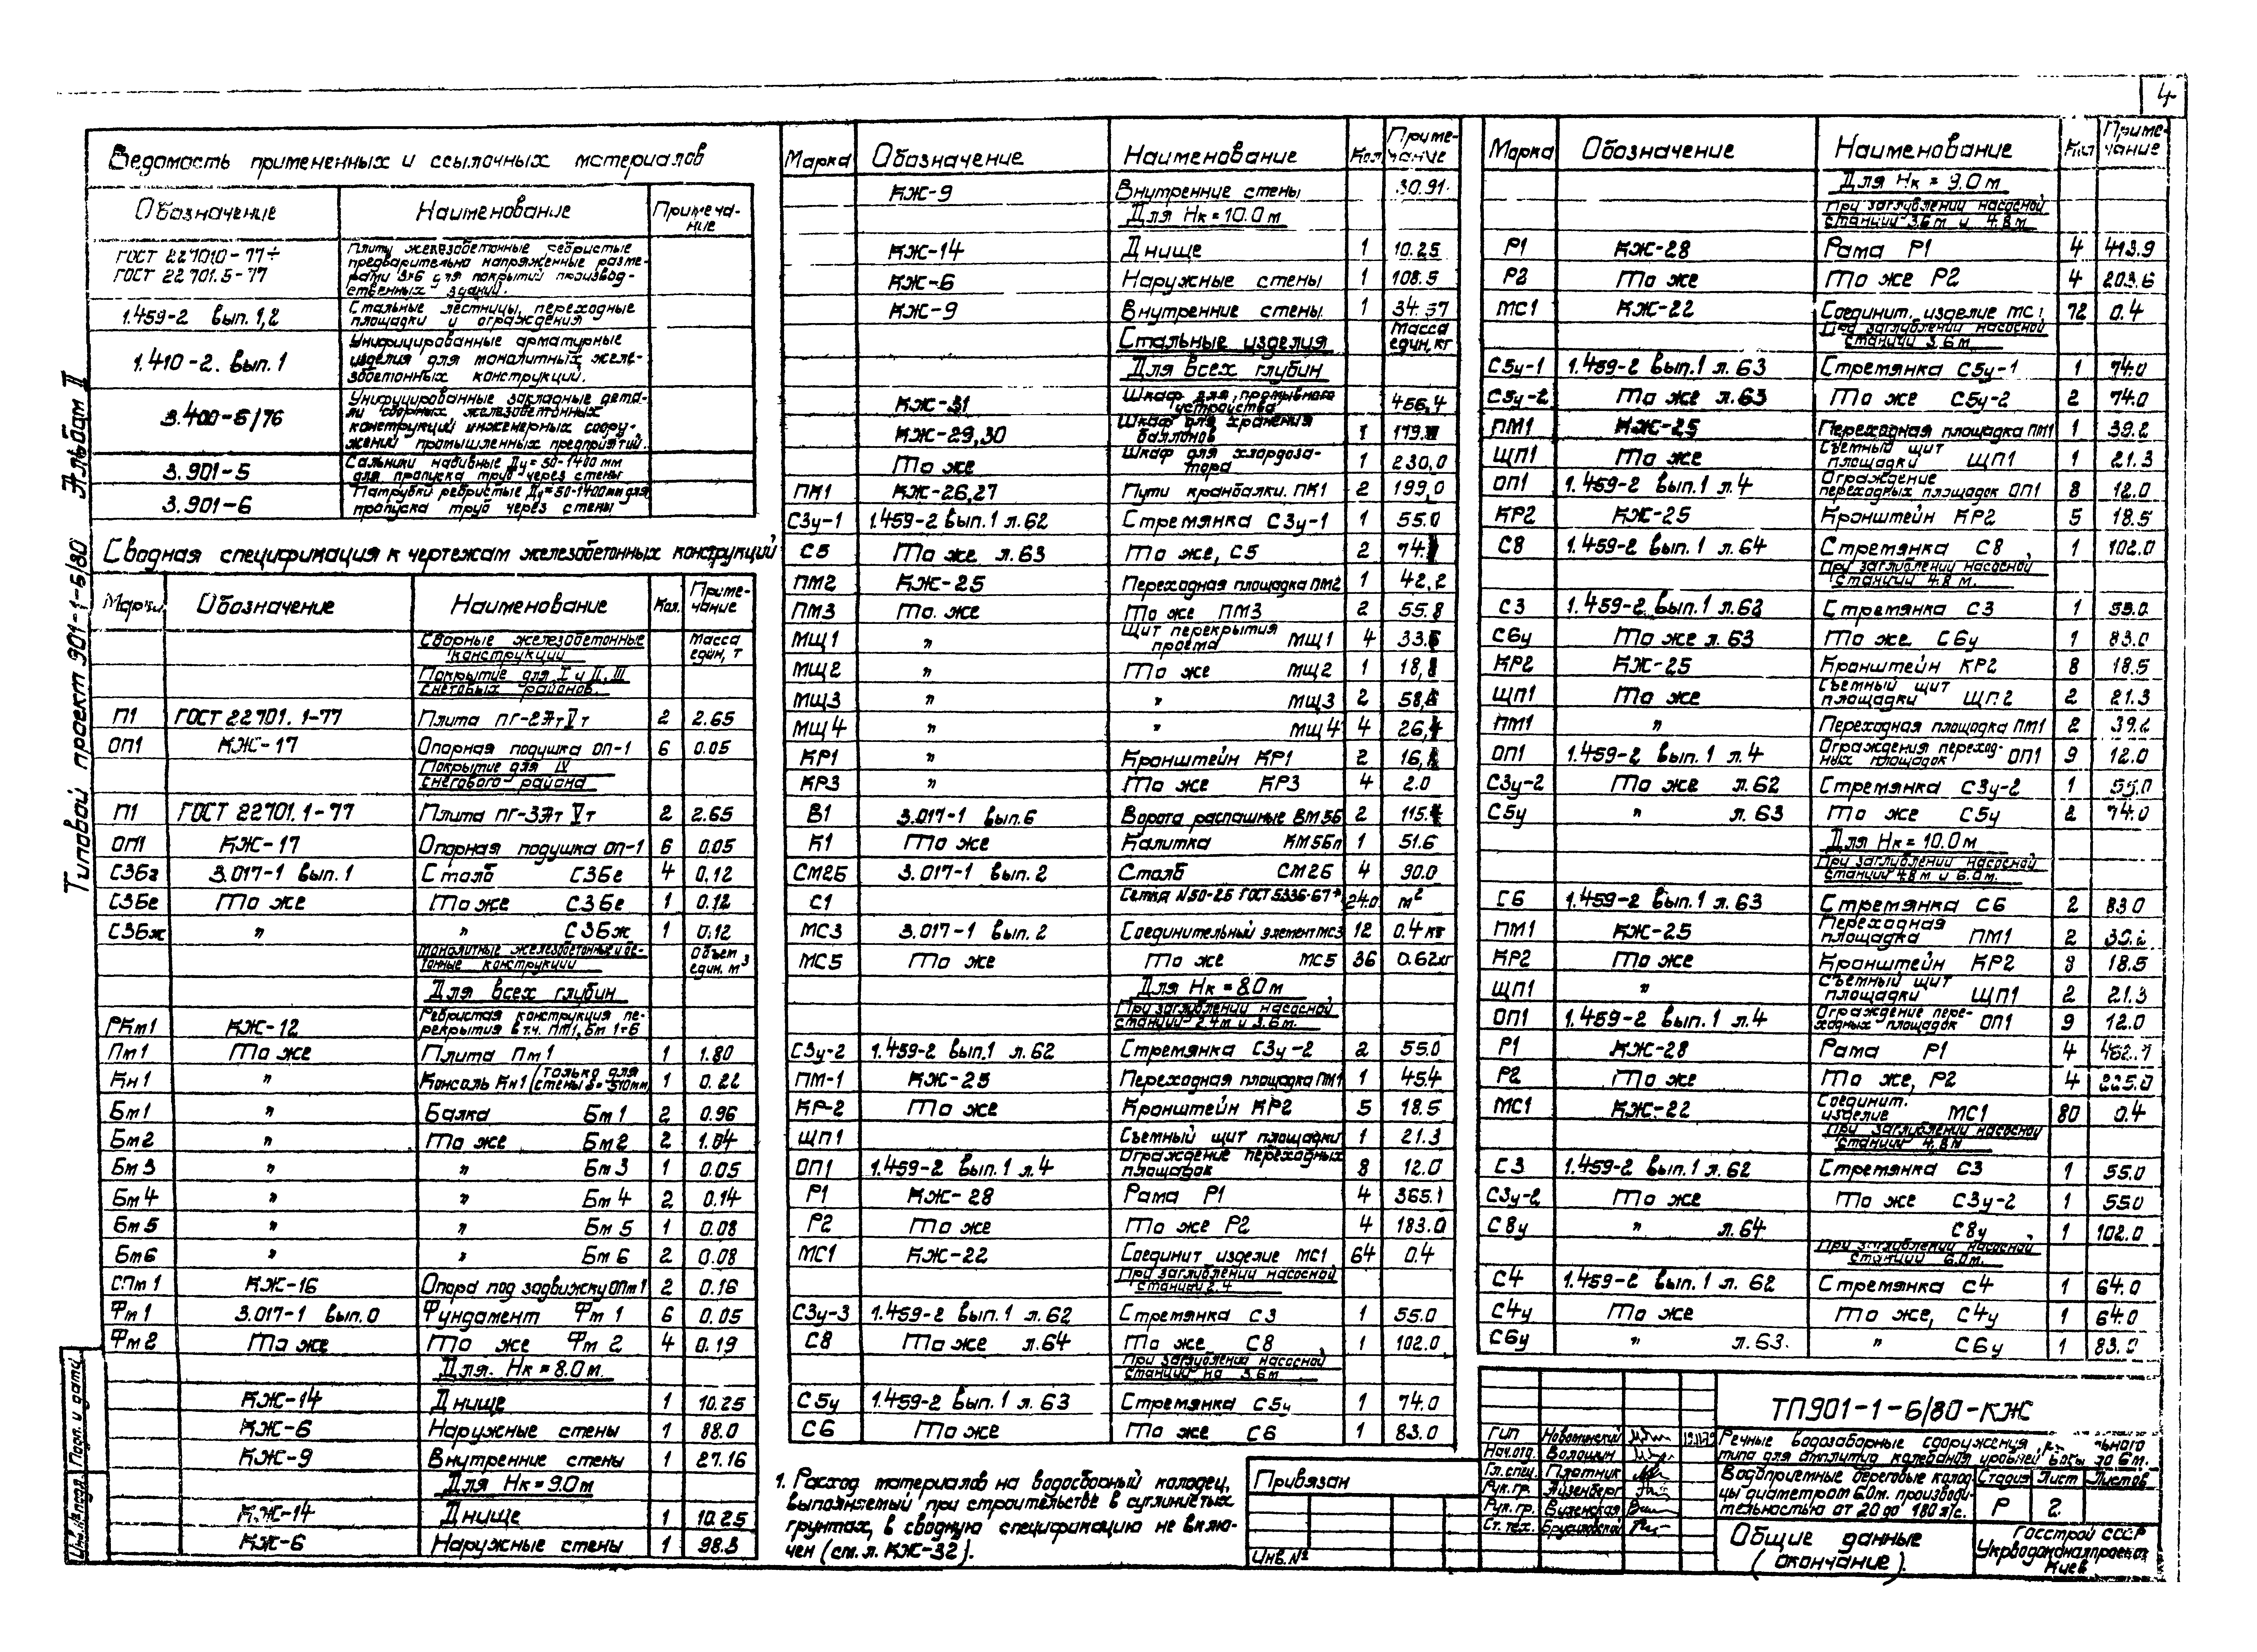 4
Типовой проект 901-1-6/80 Альбом II
Ведомость примененных и ссылочных материалов
Обозначение Наименование Примечание
ГОСТ 22701.0-77÷ ГОСТ 22701.5-77 Плиты железобетонные ребристые предварительно напряженные размерами 3×6 для покрытий производственных зданий.
1.459-2 вып. 1,2 Стальные лестницы, переходные площадки и ограждения
1.410-2. вып. 1 Унифицированные арматурные изделия для монолитных железобетонных конструкций.
3.400-6/76 Унифицированные закладные детали сборных железобетонных конструкций инженерных сооружений промышленных предприятий.
3.901-5 Сальники набивные Ду=50-1400 мм для пропуска труб через стены
3.901-6 Патрубки ребристые Ду=50-1400мм для пропуска труб через стены
Сводная спецификация к чертежам железобетонных конструкций
Марки Обозначение Наименование Кол. Примечание
Сборные железобетонные конструкции Масса един, т
Покрытие для I и II, III снеговых районов.
П1 ГОСТ 22701. 1-77 Плита ПГ-2АтVт 2 2.65
ОП1 КЖ-17 Опорная подушка ОП-1 6 0.05
Покрытие для IV снегового района
П1 ГОСТ 22701. 1-77 Плита ПГ-3Ат Vт 2 2.65
ОП1 КЖ-17 Опорная подушка ОП-1 6 0.05
С3Бг 3.017-1 вып. 1 Столб С3Бг 4 0.12
С3Бе То же То же С3Бе 1 0.12
С3Бж " " С3Бж 1 0.12
Монолитные железобетонные и бетонные конструкции Объем един. м³
Для всех глубин
РКм1 КЖ-12 Ребристая конструкция перекрытия в т.ч. Пм1, Бм 1÷6
Пм1 То же Плита Пм1 1 1.80
Кн1 " Консоль Кн1 (только для стены δ=510мм) 1 0.22
Бм1 " Балка Бм1 2 0.96
Бм2 " То же Бм2 2 1.04
Бм3 " " Бм3 1 0.05
Бм4 " " Бм4 2 0.14
Бм5 " " Бм5 1 0.08
Бм6 " " Бм6 2 0.08
СПм1 КЖ-16 Опора под задвижку ОПм1 2 0.16
Фм1 3.017-1 вып.0 Фундамент Фм 1 6 0.05
Фм2 То же То же Фм 2 4 0.19
Для. Нк=8.0м
КЖ-14 Днище 1 10.25
КЖ-6 Наружные стены 1 88.0
КЖ-9 Внутренние стены 1 27.16
Для Нк=9.0м
КЖ-14 Днище 1 10.25
КЖ-6 Наружные стены 1 98.3
Марка Обозначение Наименование Кол Примечание
КЖ-9 Внутренние стены 30.91
Для Нк=10.0м
КЖ-14 Днище 1 10.25
КЖ-6 Наружные стены 1 108.5
КЖ-9 Внутренние стены 1 34.57
Стальные изделия Масса един, кг
Для всех глубин
КЖ-31 Шкаф для промывного устройства 456,4
КЖ-29,30 Шкаф для хранения баллонов 1
То же Шкаф для хлордозатора 1 230,0
ПК1 КЖ-26,27 Пути кранбалки. ПК1 2 199,0
С3у-1 1.459-2 вып.1 л.62 Стремянка С3у-1 1 55.0
С5 То же л.63 То же, С5 2
ПМ2 КЖ-25 Переходная площадка ПМ2 1 42,2
ПМ3 То. же То же ПМ3 2 55.8
МЩ1 " Щит перекрытия проема МЩ1 4
МЩ2 " То же МЩ2 1
МЩ3 " " МЩ3 2
МЩ4 " " МЩ4 4
КР1 " Кронштейн КР1 2
КР3 " То же КР3 4 2.0
В1 3.017-1 вып.6 Ворота распашные ВМ5Б 2
К1 То же Калитка КМ5Бп 1 51.6
СМ2Б 3.017-1 вып. 2 Столб СМ2Б 4 90.0
С1 Сетка N50-2.5 ГОСТ 5336-67* 24.0 м²
МС3 3.017-1 вып. 2 Соединительный элемент МС3 12 0.4 кг
МС5 То же То же МС5 36 0.62кг
Для Нк=8.0м
При заглублении насосной станции 2.4м и 3.6м.
С3у-2 1.459-2 вып.1 л. 62 Стремянка С3у-2 2 55.0
ПМ-1 КЖ-25 Переходная площадка ПМ1 1 45.4
КР-2 То же Кронштейн КР2 5 18.5
ЩП1 Съемный щит площадки 1 21.3
ОП1 1.459-2 вып. 1 л. 4 Ограждение переходных площадок 8 12.0
Р1 КЖ-28 Рама Р1 4 365.1
Р2 То же То же Р2 4 183.0
МС1 КЖ-22 Соединит изделие МС1 64 0.4
При заглублении насосной станции 2.4
С3у-3 1.459-2 вып.1 л. 62 Стремянка С3 1 55.0
С8 То же л.64 То же С8 1 102.0
При заглублении насосной станции на 3.6м
С5у 1.459-2 вып. 1 л. 63 Стремянка С5у 1 74.0
С6 То же То же С6 1 83.0
1. Расход материалов на водосборный колодец, выполняемый при строительстве в суглинистых грунтах, в сводную спецификацию не включен (см. л. КЖ-32).
Марка Обозначение Наименование Кол Примечание
Для Нк = 9.0м
При заглублении насосной станции 3.6м и 4.8м
Р1 КЖ-28 Рама Р1 4 413.9
Р2 То же То же Р2 4 203.6
МС1 КЖ-22 Соединит. изделие МС1 72 0.4
При заглублении насосной станции 3.6м
С5у-1 1.459-2 вып.1 л. 63 Стремянка С5у-1 1 74.0
С5у-2 То же л.63 То же С5у-2 2 74.0
ПМ1 КЖ-25 Переходная площадка ПМ1 1 39.2
ЩП1 То же Съемный щит площадки ЩП1 1 21.3
ОП1 1.459-2 вып.1 л.4 Ограждение переходных площадок ОП1 8 12.0
КР2 КЖ-25 Кронштейн КР2 5 18.5
С8 1.459-2 вып. 1 л.64 Стремянка С8 1 102.0
При заглублении насосной станции 4.8 м.
С3 1.459-2 вып.1 л.62 Стремянка С3 1 55.0
С6у То же л. 63 То же С6у 1 83.0
КР2 КЖ-25 Кронштейн КР2 8 18.5
ЩП1 То же Съемный щит площадки ЩП.2 2 21.3
ПМ1 " Переходная площадка ПМ1 2 39.2
ОП1 1.459-2 вып.1 л.4 Ограждения переходных площадок ОП1 9 12.0
С3у-2 То же л.62 Стремянка С3у-2 1 55.0
С5у " л. 63 То же С5у 2 74.0
Для Нк= 10.0м
При заглублении насосной станции 4.8м и 6.0м.
С6 1.459-2 вып.1 л. 63 Стремянка С6 2 83.0
ПМ1 КЖ-25 Переходная площадка ПМ1 2 39.2
КР2 То же Кронштейн КР2 18.5
ЩП1 " Съемный щит площадки ЩП1 2 21.3
ОП1 1.459-2 вып.1 л.4 Ограждение переходных площадок ОП1 9 12.0
Р1 КЖ-28 Рама Р1 4
Р2 То же То же, Р2 4 225.0
МС1 КЖ-22 Соединит. изделие МС1 80 0.4
При заглублении насосной станции 4,8м
С3 1.459-2 вып.1 л.62 Стремянка С3 1 55.0
С3у-2 То же То же С3у-2 1 55.0
С8у " л.64 С8у 1 102.0
При заглублении насосной станции 6.0м.
С4 1.459-2 вып.1 л. 62 Стремянка С4 1 64.0
С4у То же То же, С4у 1 64.0
С6у " л.63. " С6у 1 83.0
Привязан
Инв.№
ТП901-1-6/80-КЖ
ГИП Новоминский
Нач.отд. Волошин
Гл.спец. Платник
Рук.гр. Айзенберг
Рук. гр. Виленская
Ст. тех.
Речные водозаборные сооружения
типа для амплитуд колебания уровней воды до 6м.
Водоприемные береговые колодцы диаметром 6.0м. производительностью от 20 до 180 л/с.
Стадия Лист Листов
Р 2.
Общие данные (окончание).
Госстрой СССР
Укрводоканалпроект
Киев
Инв.№подл. Подп. и дата